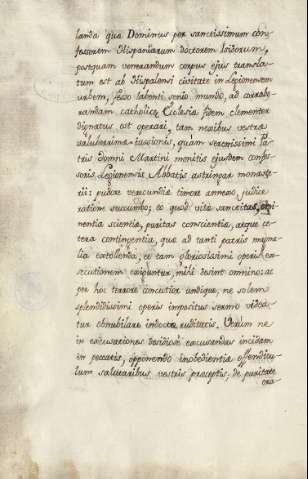 landa qua Dominus per sanctissimum con
fessorem Hispaniarum doctorem Isidorum,
postquam venerandum corpus ejus transla-
tum est ab Hispalensi civitate in Legionensem
urbem, fesso labenti senio mundo, ad corrobo-
randam catholicæ Eclesiæ fidem clementer
dignatus est operari, tam nexibus vestræ
saluberrimæ iussionis, quam serenissimi Pa-
tris domni Martini monitis ejusdem confes-
soris Legionensis Abbatis astringar monaste-
rii: pudore verecundiæ timore annexo, judice
ratione succumbo; eo quod vitæ sanctitas, emi-
nentia scientiæ, puritas conscientiæ, atque cæ-
tera contingentia, quæ ad tanti patris mira-
lia extollenda, et tam gloriosissimi operis ex-
secutionem exiguntur, mihi desint omnino: ac
per hoc terrore concutior undique, ne solem
splendidissimi operis imperitus sermo videa-
tur obnubilare indocta ruditatis. Verum ne
in excusationes desidiosi excusandas incidam
in peccatis, opponendo inobedientiæ offendicu-
lum salutaribus vestris præceptis; de puritate